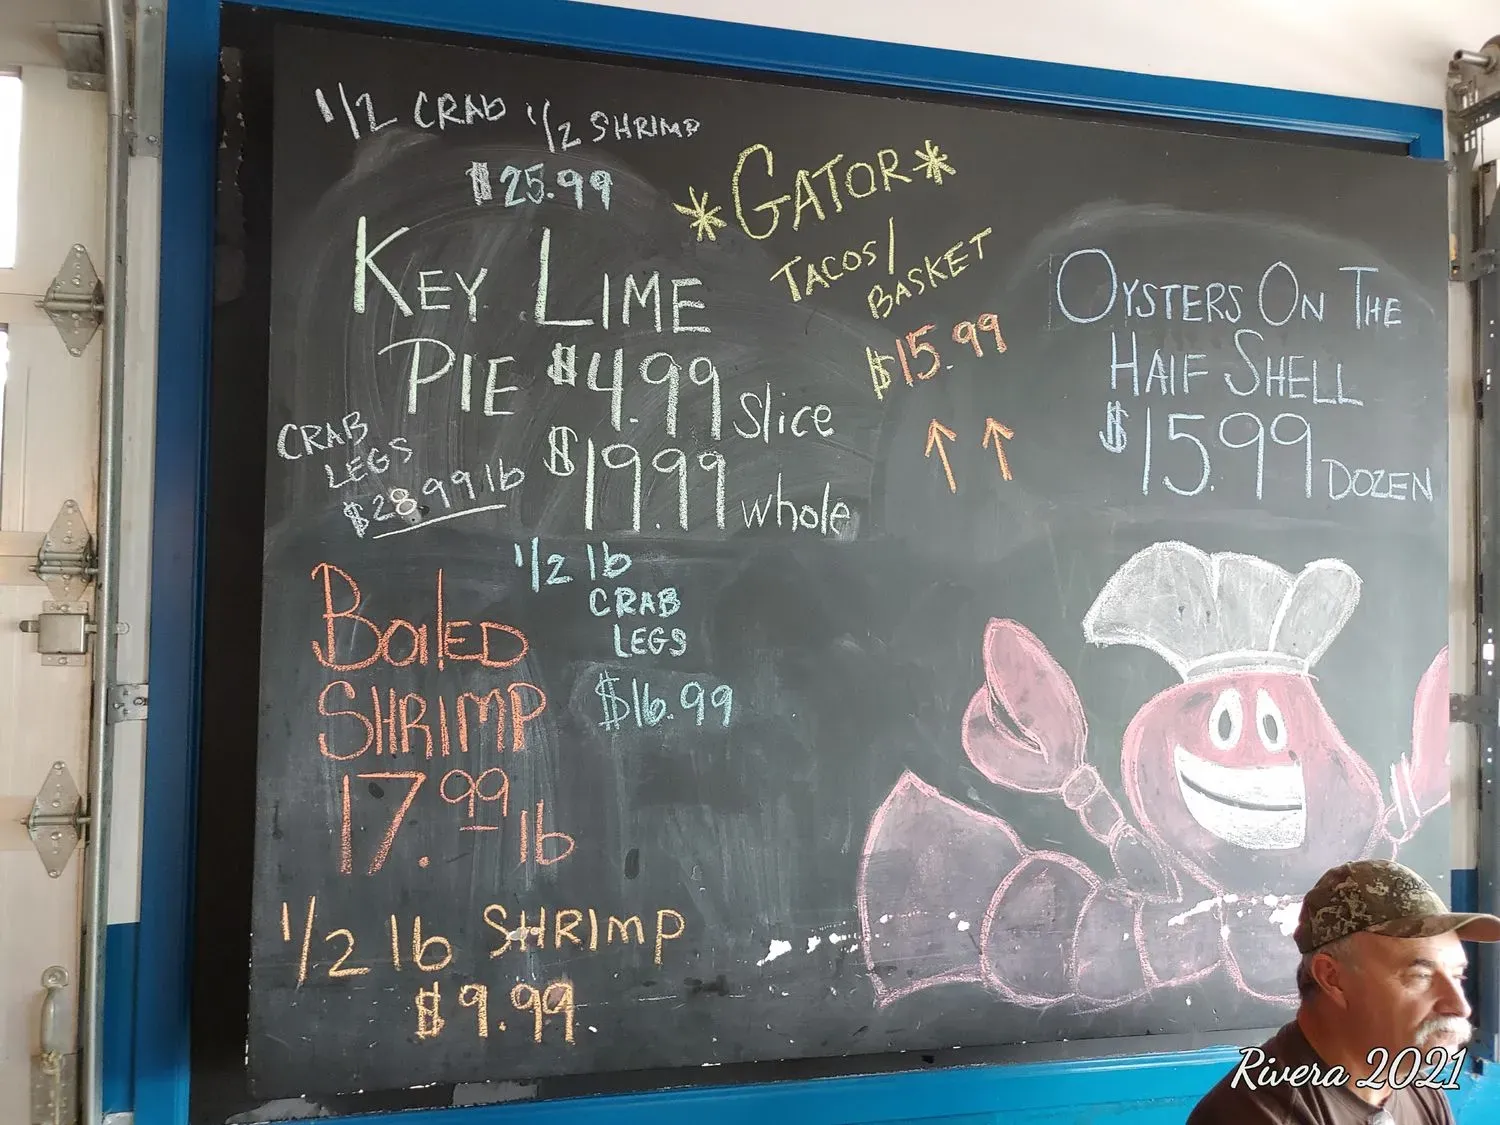 1/2 CRAB 1/2 SHRIMP
$25.99
KEY LIME
PIE $4.99 Slice
$19.99 whole
CRAB
LEGS
$28.99 lb
1/2 lb
CRAB
LEGS
$16.99
BOILED
SHRIMP
17.99 lb
1/2 lb SHRIMP
$9.99
*GATOR*
TACOS/
BASKET
$15.99
OYSTERS ON THE
HALF SHELL
$15.99 DOZEN
Rivera 2021